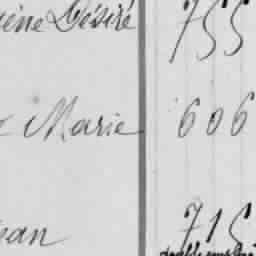 ène Désiré 755
Marie 606
ean 715